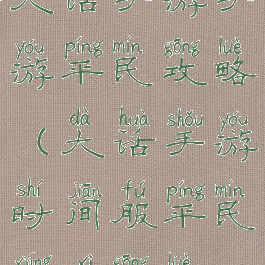 yóu píng mín gōng luè
游平民攻略
dà huà shǒu yóu
(大话手游
shí jiān fú píng mín
时间服平民